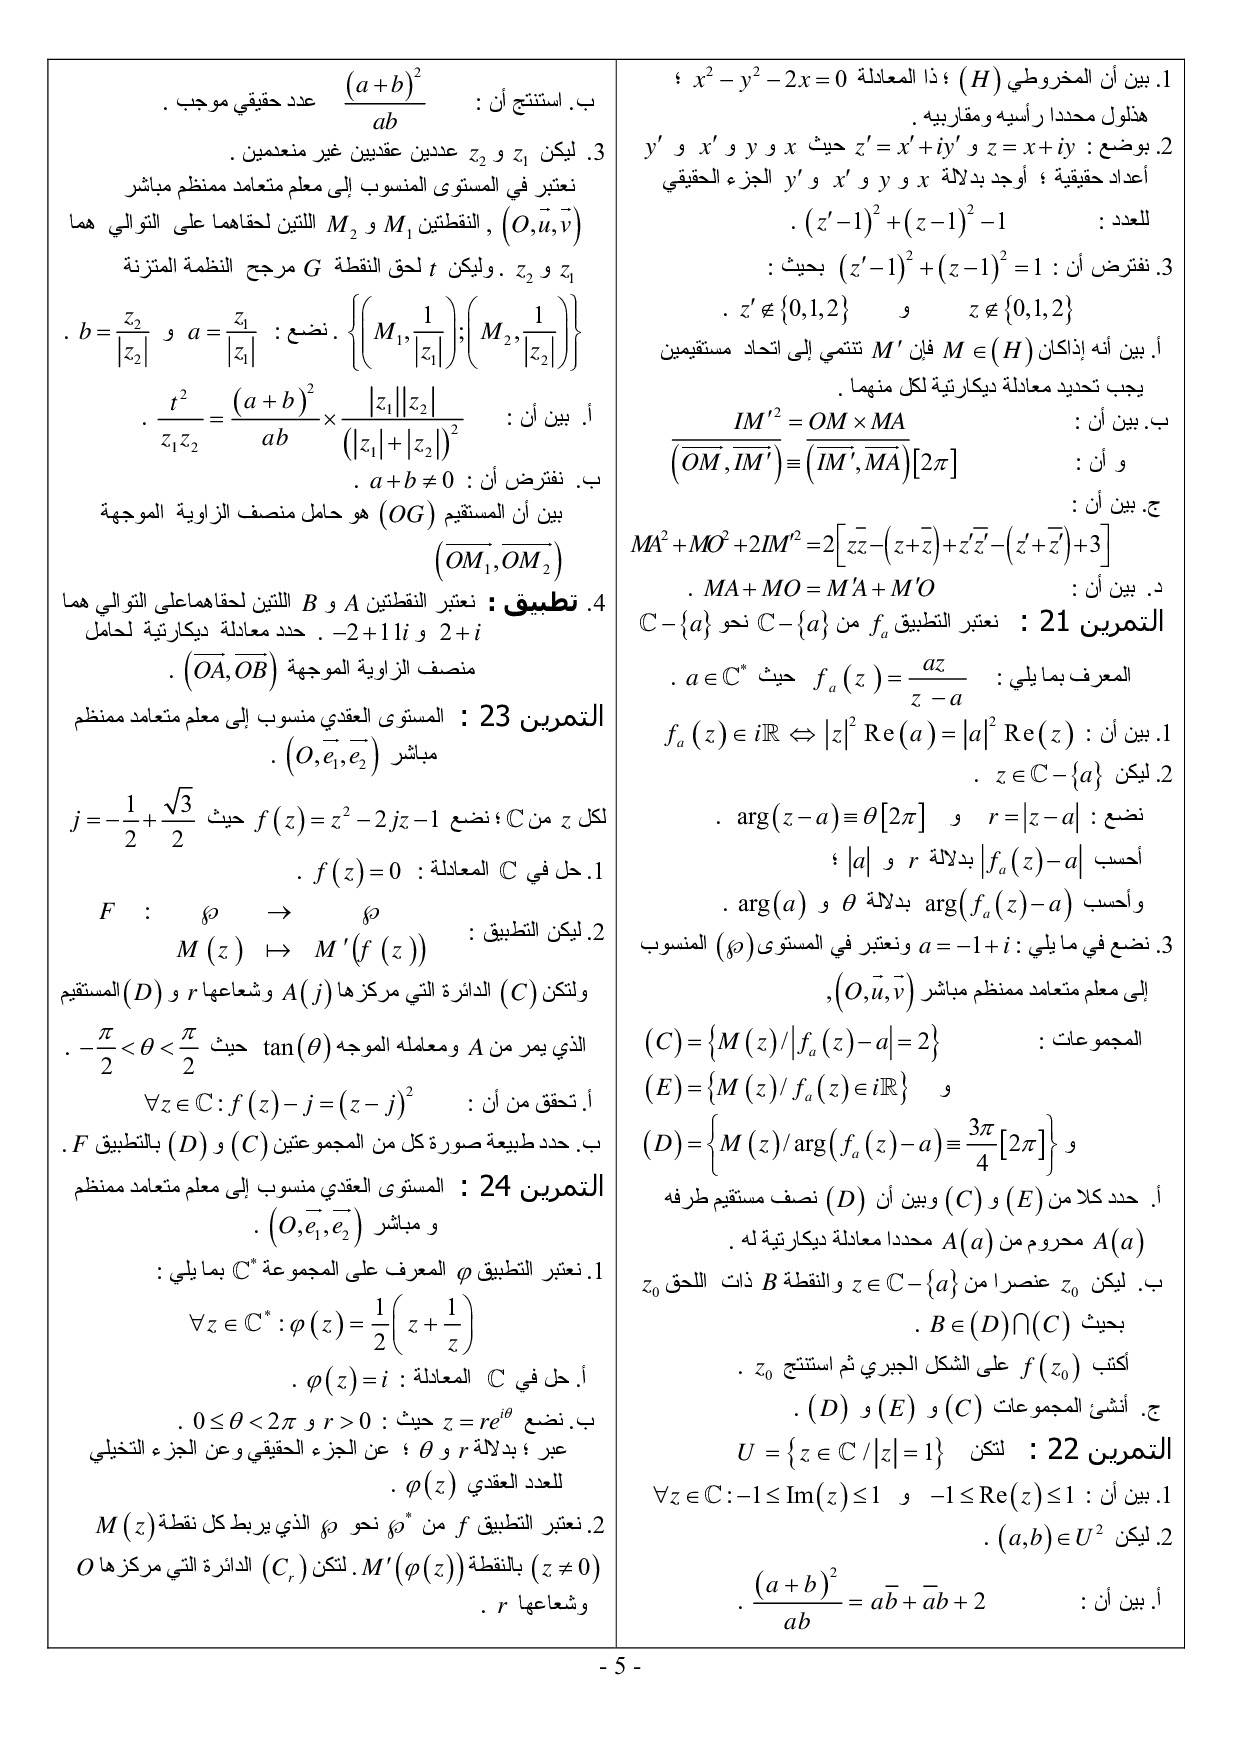 1. بين أن المخروطي (H) ؛ ذا المعادلة x² − y² − 2x = 0 ؛
هذلول محددا رأسيه ومقاربيه .
2. بوضع : z = x + iy و z′ = x′ + iy′ حيث x و y و x′ و y′
أعداد حقيقية ؛ أوجد بدلالة x و y و x′ و y′ الجزء الحقيقي
للعدد : (z′ − 1)² + (z − 1)² − 1 .
3. نفترض أن : (z′ − 1)² + (z − 1)² = 1 بحيث :
z ∉ {0,1,2} و z′ ∉ {0,1,2} .
أ. بين أنه إذاكان M ∈ (H) فإن M′ تنتمي إلى اتحاد مستقيمين
يجب تحديد معادلة ديكارتية لكل منهما .
ب. بين أن : IM′² = OM × MA
و أن : \overline{(\overrightarrow{OM}, \overrightarrow{IM′})} ≡ \overline{(\overrightarrow{IM′}, \overrightarrow{MA})} [2π]
ج. بين أن :
MA² + MO² + 2IM′² = 2[z\overline{z} − (z + \overline{z}) + z′\overline{z′} − (z′ + \overline{z′}) + 3]
د. بين أن : MA + MO = M′A + M′O .
التمرين 21 : نعتبر التطبيق f_a من ℂ − {a} نحو ℂ − {a}
المعرف بما يلي : f_a(z) = \frac{az}{z − a} حيث a ∈ ℂ* .
1. بين أن : f_a(z) ∈ iℝ ⇔ |z|² Re(a) = |a|² Re(z)
2. ليكن z ∈ ℂ − {a} .
نضع : r = |z − a| و arg(z − a) ≡ θ [2π] .
أحسب |f_a(z) − a| بدلالة r و |a| ؛
وأحسب arg(f_a(z) − a) بدلالة θ و arg(a) .
3. نضع في ما يلي : a = −1 + i ونعتبر في المستوى (℘) المنسوب
إلى معلم متعامد ممنظم مباشر (O, \vec{u}, \vec{v}) ,
المجموعات : (C) = {M(z) / |f_a(z) − a| = 2}
و (E) = {M(z) / f_a(z) ∈ iℝ}
و (D) = {M(z) / arg(f_a(z) − a) ≡ \frac{3π}{4} [2π]}
أ. حدد كلا من (E) و (C) وبين أن (D) نصف مستقيم طرفه
A(a) محروم من A(a) محددا معادلة ديكارتية له .
ب. ليكن z₀ عنصرا من z ∈ ℂ − {a} والنقطة B ذات اللحق z₀
بحيث B ∈ (D) ⋂ (C) .
أكتب f(z₀) على الشكل الجبري ثم استنتج z₀ .
ج. أنشئ المجموعات (C) و (E) و (D) .
التمرين 22 : لتكن U = {z ∈ ℂ / |z| = 1}
1. بين أن : −1 ≤ Re(z) ≤ 1 و ∀z ∈ ℂ : −1 ≤ Im(z) ≤ 1
2. ليكن (a,b) ∈ U² .
أ. بين أن : \frac{(a + b)²}{ab} = a\overline{b} + \overline{a}b + 2 .
ب. استنتج أن : \frac{(a + b)²}{ab} عدد حقيقي موجب .
3. ليكن z₁ و z₂ عددين عقديين غير منعدمين .
نعتبر في المستوى المنسوب إلى معلم متعامد ممنظم مباشر
(O, \vec{u}, \vec{v}) , النقطتين M₁ و M₂ اللتين لحقاهما على التوالي هما
z₁ و z₂ . وليكن t لحق النقطة G مرجح النظمة المتزنة
{(M₁, \frac{1}{|z₁|}) ; (M₂, \frac{1}{|z₂|})} . نضع : a = \frac{z₁}{|z₁|} و b = \frac{z₂}{|z₂|} .
أ. بين أن : \frac{t²}{z₁z₂} = \frac{(a + b)²}{ab} × \frac{|z₁||z₂|}{(|z₁| + |z₂|)²} .
ب. نفترض أن : a + b ≠ 0 .
بين أن المستقيم (OG) هو حامل منصف الزاوية الموجهة
(\overrightarrow{OM₁}, \overrightarrow{OM₂})
4. تطبيق : نعتبر النقطتين A و B اللتين لحقاهماعلى التوالي هما
2 + i و −2 + 11i . حدد معادلة ديكارتية لحامل
منصف الزاوية الموجهة (\overrightarrow{OA}, \overrightarrow{OB}) .
التمرين 23 : المستوى العقدي منسوب إلى معلم متعامد ممنظم
مباشر (O, \vec{e₁}, \vec{e₂}) .
لكل z من ℂ ؛ نضع f(z) = z² − 2jz − 1 حيث j = −\frac{1}{2} + \frac{√3}{2}
1. حل في ℂ المعادلة : f(z) = 0 .
2. ليكن التطبيق : F : ℘ → ℘
M(z) ↦ M′(f(z))
ولتكن (C) الدائرة التي مركزها A(j) وشعاعها r و (D) المستقيم
الذي يمر من A ومعامله الموجه tan(θ) حيث −\frac{π}{2} < θ < \frac{π}{2} .
أ. تحقق من أن : ∀z ∈ ℂ : f(z) − j = (z − j)²
ب. حدد طبيعة صورة كل من المجموعتين (C) و (D) بالتطبيق F .
التمرين 24 : المستوى العقدي منسوب إلى معلم متعامد ممنظم
و مباشر (O, \vec{e₁}, \vec{e₂}) .
1. نعتبر التطبيق φ المعرف على المجموعة ℂ* بما يلي :
∀z ∈ ℂ* : φ(z) = \frac{1}{2}(z + \frac{1}{z})
أ. حل في ℂ المعادلة : φ(z) = i .
ب. نضع z = re^{iθ} حيث : r > 0 و 0 ≤ θ < 2π .
عبر ؛ بدلالة r و θ ؛ عن الجزء الحقيقي وعن الجزء التخيلي
للعدد العقدي φ(z) .
2. نعتبر التطبيق f من ℘* نحو ℘ الذي يربط كل نقطة M(z)
(z ≠ 0) بالنقطة M′(φ(z)) . لتكن (C_r) الدائرة التي مركزها O
وشعاعها r .
- 5 -